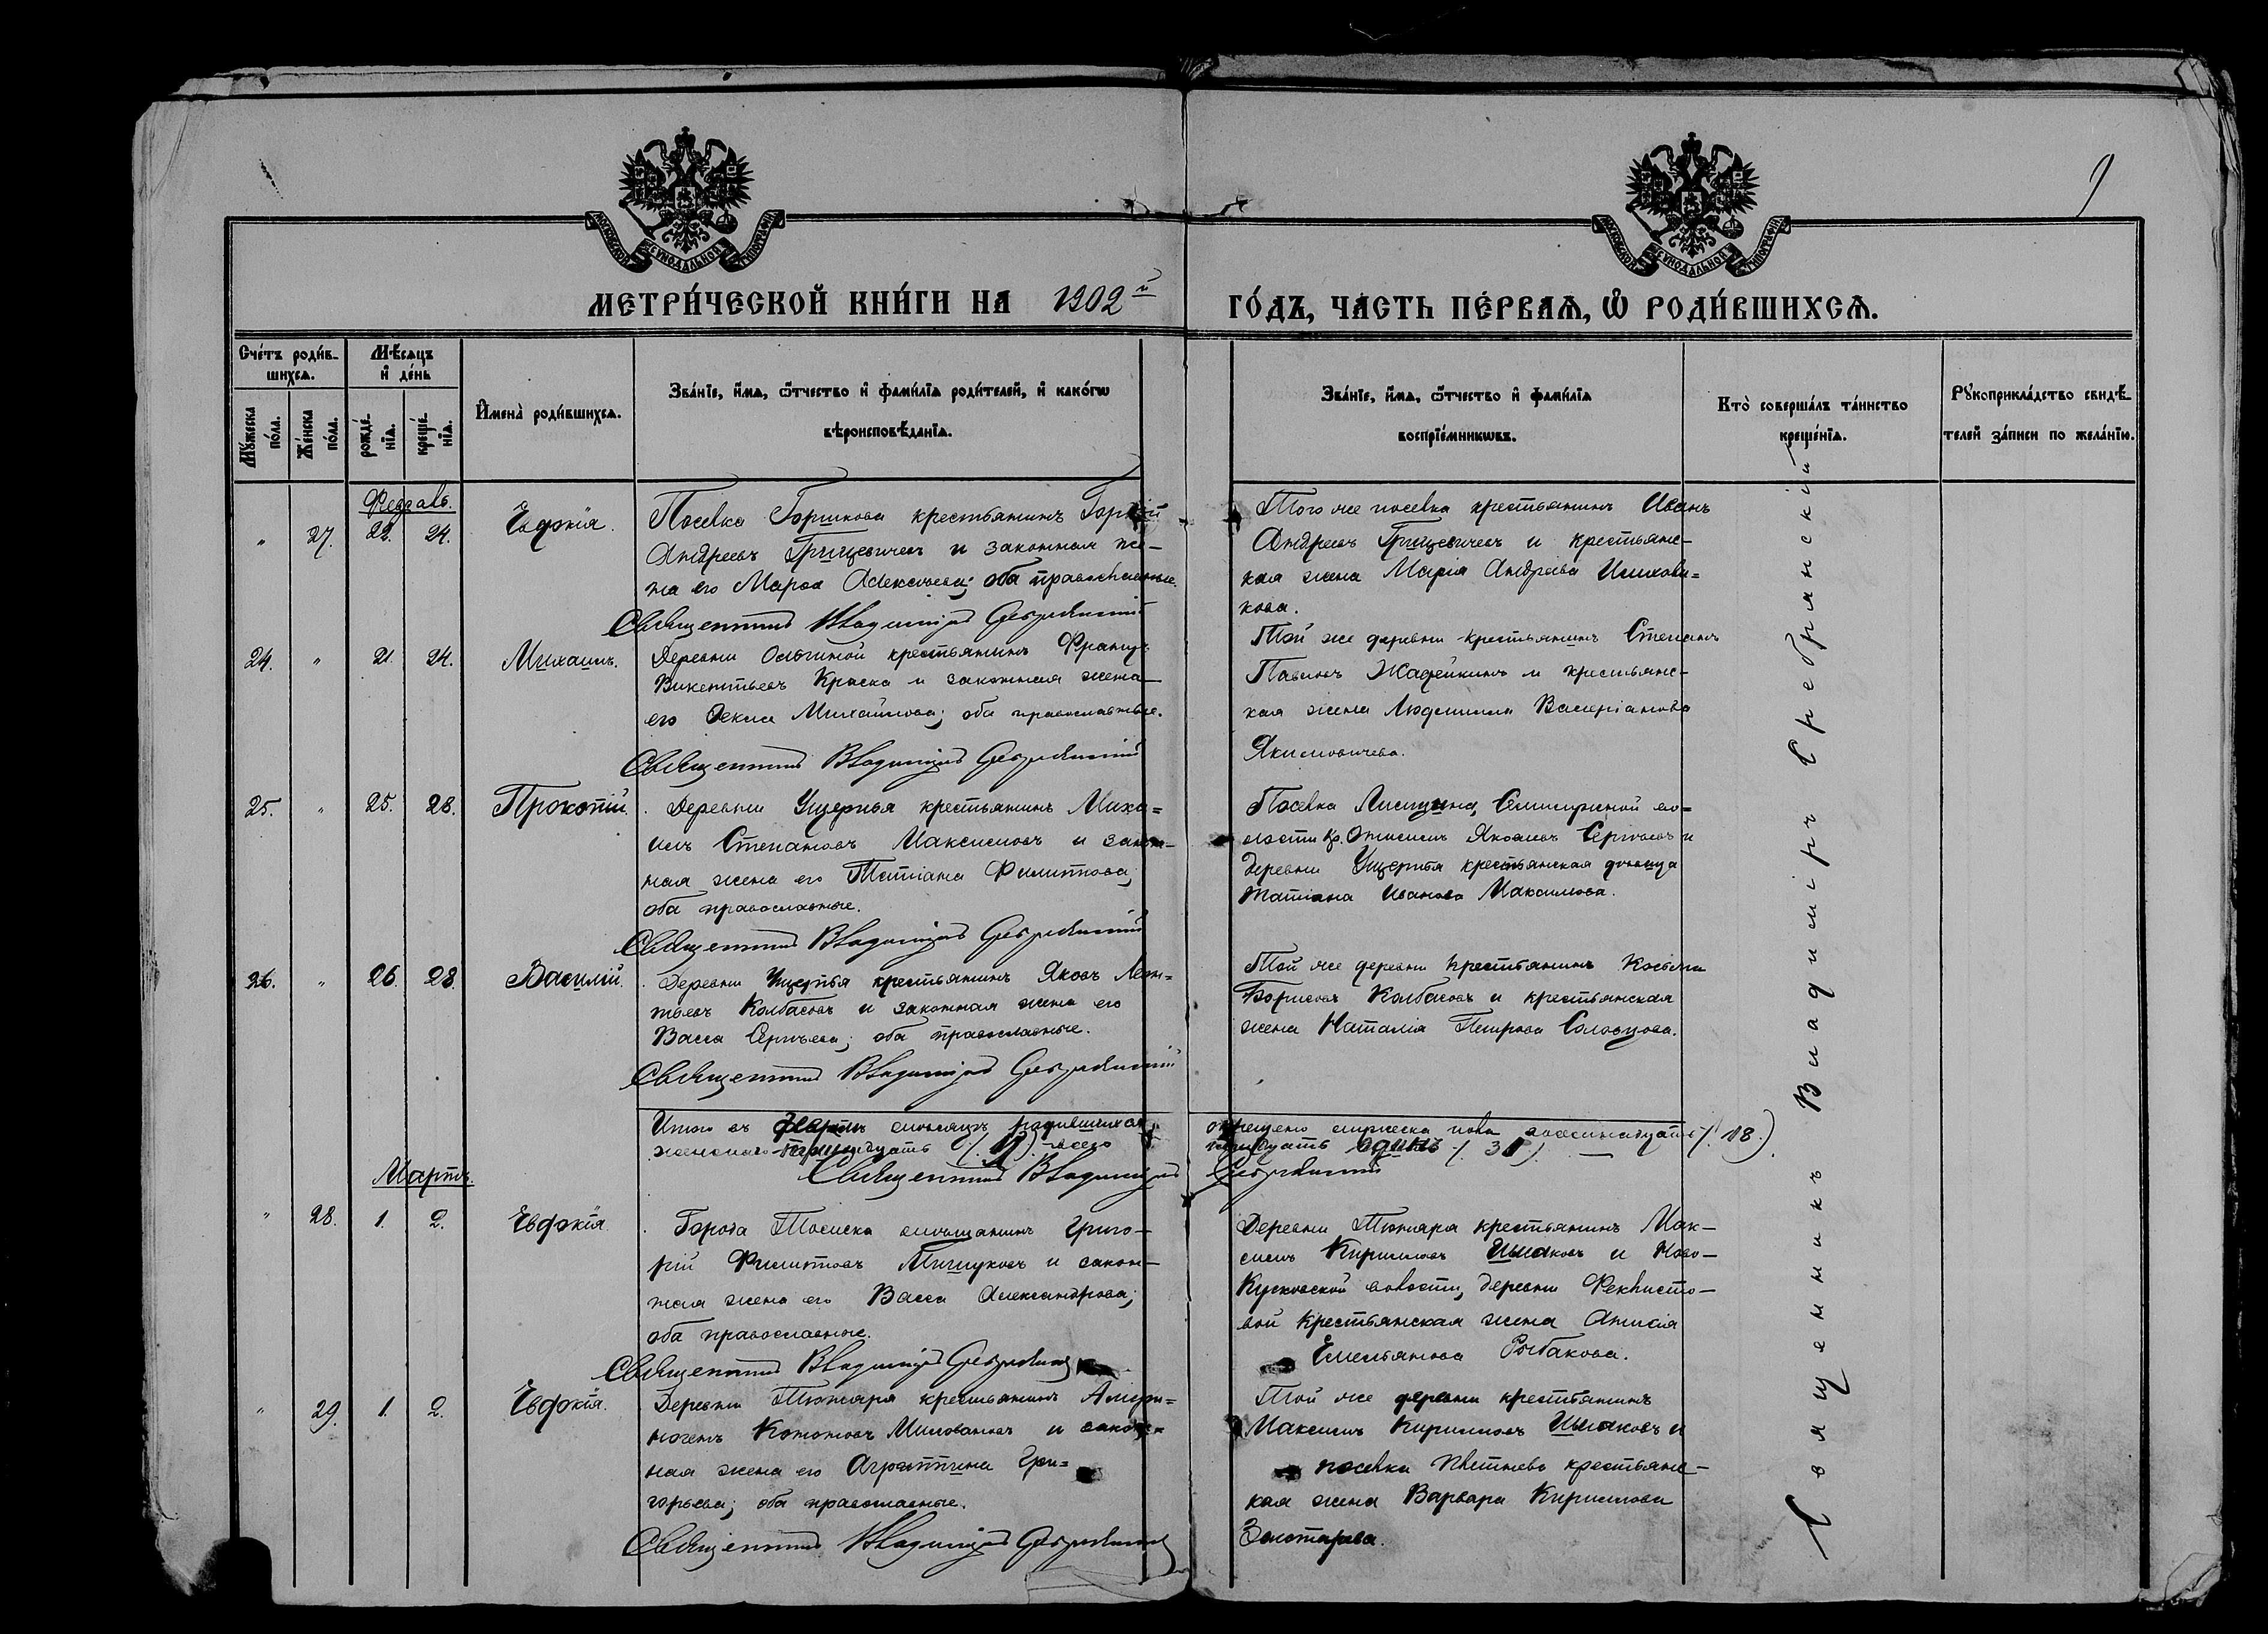 9
МОСКОВСКОЙ СѴНОДАЛЬНОЙ ТИПОГРАФІИ
МОСКОВСКОЙ СѴНОДАЛЬНОЙ ТИПОГРАФІИ
МЕТРИ́ЧЕСКОЙ КНИ́ГИ НА 1902й
ГО́ДЪ, ЧА́СТЬ ПЕ́РВАѦ, Ѽ РОДИ́ВШИХСѦ.
Сче́тъ роди́в-
шихсѧ.
Мѣ́сѧцъ
и҆ де́нь
Мꙋ́жеска
по́ла.
Же́нска
по́ла.
рожде́-
нїѧ.
креще́-
нїѧ.
И҆мена̀ роди́вшихсѧ.
Зва́нїе, и҆́мѧ, ѻ҆́тчество и҆ фами́лїѧ роди́телей, и҆ како́гѡ
вѣроисповѣ́данїѧ.
Зва́нїе, и҆́мѧ, ѻ҆́тчество и҆ фами́лїѧ
воспрїе́мникѡвъ.
Кто̀ соверша́лъ та́инство
креще́нїѧ.
Рꙋкоприкла́дство свидѣ́-
телей за́писи по жела́нїю.
Февраль.
" 27. 22. 24. Евдокія.
Поселка Горшкова крестьянинъ
Андреевъ Грицевичевъ и законная же-
на его Алексѣева; оба православные.
Священникъ Владиміръ Серебрянскій
Того же поселка крестьянинъ Иванъ
Андреевъ Грицевичевъ и крестьянс-
кая жена Марія Андреева
кова.
24. " 21. 24. Михаилъ.
Деревни Ольгиной крестьянинъ Францъ
Викентьевъ Краска и законная жена
его Текля Михайлова; оба православные.
Священникъ Владиміръ Серебрянскій
Той же деревни крестьянинъ Степанъ
Павловъ Жадейкинъ и крестьянс-
кая жена Людмила Валеріанова
Якимовичева.
25. " 25. 28. Прокопій.
Деревни Ущерпья крестьянинъ Миха=
илъ Степановъ Максимовъ и закон-
ная жена его Татіана Филиппова;
оба православные.
Священникъ Владиміръ Серебрянскій
Поселка во=
лости кр. Яковлевъ Сергѣевъ и
деревни Ущерпья крестьянская дѣвица
Татіана Иванова Максимова.
26. " 26. 28. Василій.
Деревни Ущерпья крестьянинъ Яковъ Леон=
тьевъ Колбасовъ и законная жена его
Васса Сергѣева; оба православные.
Священникъ Владиміръ Серебрянскій
Той же деревни крестьянинъ
Борисовъ Колбасовъ и крестьянская
жена Наталія Петрова Соловцова.
Итого въ мѣсяцѣ родившихся
женскаго тринадцать (13) всего
окрещено мужеска пола восемнадцать (18.)
тридцать одинъ (31).
Священникъ Владиміръ Серебрянскій
Мартъ.
" 28. 1. 2. Евдокія.
Города Томска мѣщанинъ Григо-
рій Филипповъ Мишуковъ и закон-
ная жена его Васса Александрова;
оба православные.
Священникъ Владиміръ Серебрянскій
Деревни крестьянинъ Мак-
симъ Кирилловъ Ишаковъ и Ново-
Кусковской волости, деревни Феклисто-
вой крестьянская жена Анисія
Емельянова Рыбакова.
" 29. 1. 2. Евдокія.
Деревни крестьянинъ
Миловановъ и закон=
ная жена его Агриппина Гри=
горьева; оба православные.
Священникъ Владиміръ Серебрянскій
Той же деревни крестьянинъ
Максимъ Кирилловъ Ишаковъ и
поселка крестьянс-
кая жена Варвара Кириллова
Золотарева.
Священникъ Владиміръ Серебрянскій